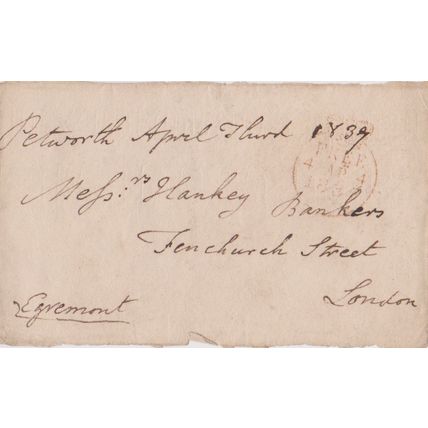 Petworth April Third 1839
Messrs Hankey Bankers
Fenchurch Street
London
Egremont